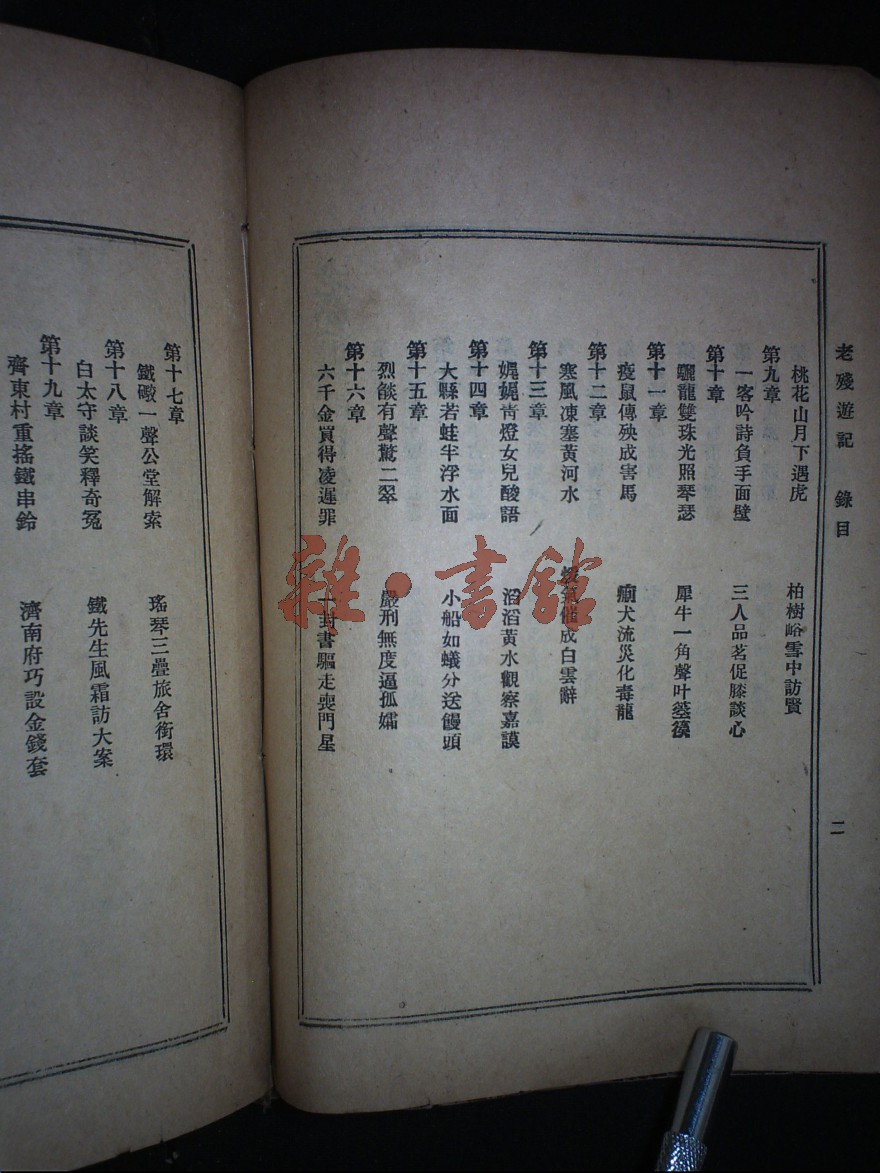 老殘遊記　錄目　二
桃花山月下遇虎　柏樹峪雪中訪賢
第九章
一客吟詩負手面壁　三人品茗促膝談心
第十章
驪龍雙珠光照琴瑟　犀牛一角聲叶箜篌
第十一章
疫鼠傳殃成害馬　瘈犬流災化毒龍
第十二章
寒風凍塞黃河水　煖氣催成白雲辭
第十三章
娓娓青燈女兒酸語　滔滔黃水觀察嘉謨
第十四章
大縣若蛙半浮水面　小船如蟻分送饅頭
第十五章
烈燄有聲驚二翠　嚴刑無度逼孤孀
第十六章
六千金買得凌遲罪　一封書驅走喪門星
第十七章
鐵礮一聲公堂解索　瑤琴三疊旅舍銜環
第十八章
白太守談笑釋奇冤　鐵先生風霜訪大案
第十九章
齊東村重搖鐵串鈴　濟南府巧設金錢套
雜·書館